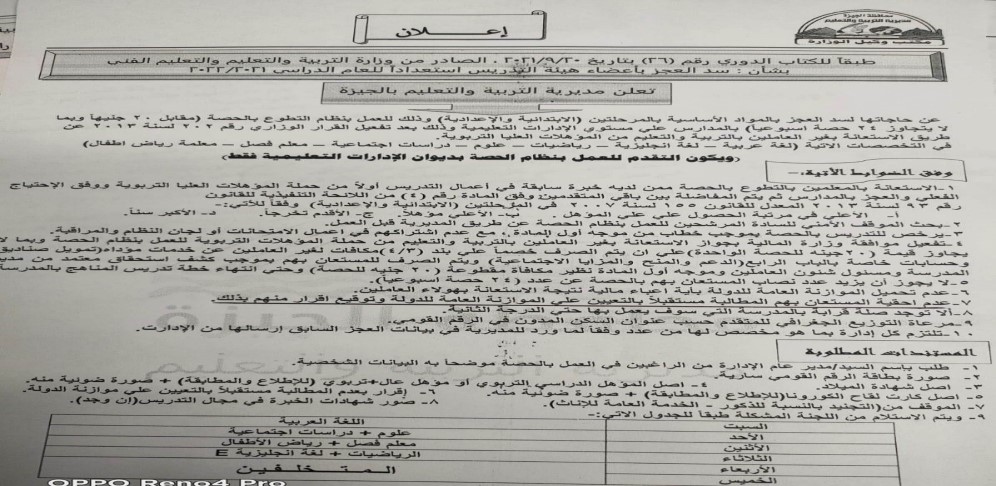 محافظة الجيزة
مديرية التربية والتعليم
مكتب وكيل الوزارة
إعـــلان
طبقاً للكتاب الدوري رقم (٢٦) بتاريخ ٢٠٢١/٩/٢٠ ، الصادر من وزارة التربية والتعليم والتعليم الفني
بشأن : سد العجز بأعضاء هيئة التدريس استعداداً للعام الدراسي ٢٠٢٢/٢٠٢١
تعلن مديرية التربية والتعليم بالجيزة
عن حاجاتها لسد العجز بالمواد الأساسية بالمرحلتين (الابتدائية والإعدادية) وذلك للعمل بنظام التطوع بالحصة (مقابل ٢٠ جنيهاً وبما
لا يتجاوز ٢٤ حصة اسبوعياً) بالمدارس علي مستوي الإدارات التعليمية وذلك بعد تفعيل القرار الوزاري رقم ٢٠٢ لسنة ٢٠١٣ عن
طريق الاستعانة بغير العاملين بالتربية والتعليم من المؤهلات العليا التربوية.
في التخصصات الاتية (لغة عربية – لغة انجليزية – رياضيات – علوم – دراسات اجتماعية – معلم فصل – معلمة رياض اطفال)
(ويكون التقدم للعمل بنظام الحصة بديوان الإدارات التعليمية فقط)
وفق الضوابط الآتية:-
١-الاستعانة بالمعلمين بالتطوع بالحصة ممن لديه خبرة سابقة في أعمال التدريس أولاً من حملة المؤهلات العليا التربوية ووفق الإحتياج
الفعلي والعجز والمدارس ثم يتم المفاضلة بين باقي المتقدمين وفق المادة رقم (٤) من اللائحة التنفيذية للقانون
رقم لسنة ٢٠١٣ المعدل للقانون ١٥٥ لسنة ٢٠٠٧ في المرحلتين (الابتدائية والإعدادية) وفقاً للآتي:-
أ- الأعلي في مرتبة الحصول علي علي المؤهل . ب- الأعلي مؤهلاً ج- الأقدم تخرجاً. د- الأكبر سناً.
٢-بحث الموقف الأمني للسادة المرشحين للعمل بنظام الحصة عن طريق المديرية قبل العمل.
٣-يرخص للتدريس بالحصة بموجب خطاب من موجه أول المادة ، مع عدم اشتراكهم في اعمال الامتحانات أو لجان النظام والمراقبة.
٤-تفعيل موافقة وزارة المالية بجواز الاستعانة بغير العاملين بالتربية والتعليم من حملة المؤهلات التربوية للعمل بنظام الحصة وبما لا
يجاوز قيمة (٢٠جنيه للحصة الواحدة) علي ان يتم الصرف خصماً علي بند (٤/٣) مكافآت لغير العاملين عن خدمات مؤداه(تمويل صناديق
وحسابات خاصة بالباب الرابع(الدعم والمنح والمزايا الاجتماعية) ويتم الصرف للمستعان بهم بموجب كشف استحقاق معتمد من مدير
المدرسة ومسئول شئون العاملين وموجه أول المادة نظير مكافأة مقطوعة (٢٠ جنيه للحصة) وحتي انتهاء خطة تدريس المناهج بالمدرسة
٥-لا يجوز ان يزيد عدد نصاب المستعان بهم بالحصة عن عدد (٢٤ حصة اسبوعياً).
٦-عدم تحميل الموازنة العامة للدولة باية اعباء مالية نتيجة الاستعانة بهولاء العاملين.
٧-عدم احقية المستعان بهم المطالبة مستقبلاً بالتعيين علي الموازنة العامة للدولة وتوقيع اقرار منهم بذلك.
٨-ألا توجد صلة قرابة بالمدرسة التي سوف يعمل بها حتي الدرجة الثانية.
٩-مرعاة التوزيع الجغرافي للمتقدم حسب عنوان السكن المدون في الرقم القومي.
١٠-تلتزم كل إدارة بما هو مخصص لها من عدد وفقاً لما ورد للمديرية في بيانات العجز السابق إرسالها من الإدارت.
المستندات المطلوبة
١- طلب باسم السيد/مدير عام الإدارة من الراغبين في العمل بالحصة وموضحاً به البيانات الشخصية.
٢- صورة بطاقة الرقم القومي سارية.
٣- اصل شهادة الميلاد. ٤- اصل المؤهل الدراسي التربوي أو مؤهل عال+تربوي (للإطلاع والمطابقة) + صورة ضوئية منه.
٥- اصل كارت لقاح الكورونا(للإطلاع والمطابقة) + صورة ضوئية منه. ٦- إقرار بعدم المطالبة مستقبلاً بالتعيين علي موازنة الدولة.
٧- الموقف من(التجنيد بالنسبة للذكور - الخدمة العامة للإناث). ٨- صور شهادات الخبرة في مجال التدريس(إن وجد).
٩- ويتم الاستلام من اللجنة المشكلة طبقاً للجدول الآتي:-
السبت اللغة العربية
الأحد علوم + دراسات اجتماعية
الأثنين معلم فصل + رياض الأطفال
الثلاثاء الرياضيات + لغة انجليزية E
الأربعاء المتخلفين
الخميس
OPPO Reno4 Pro